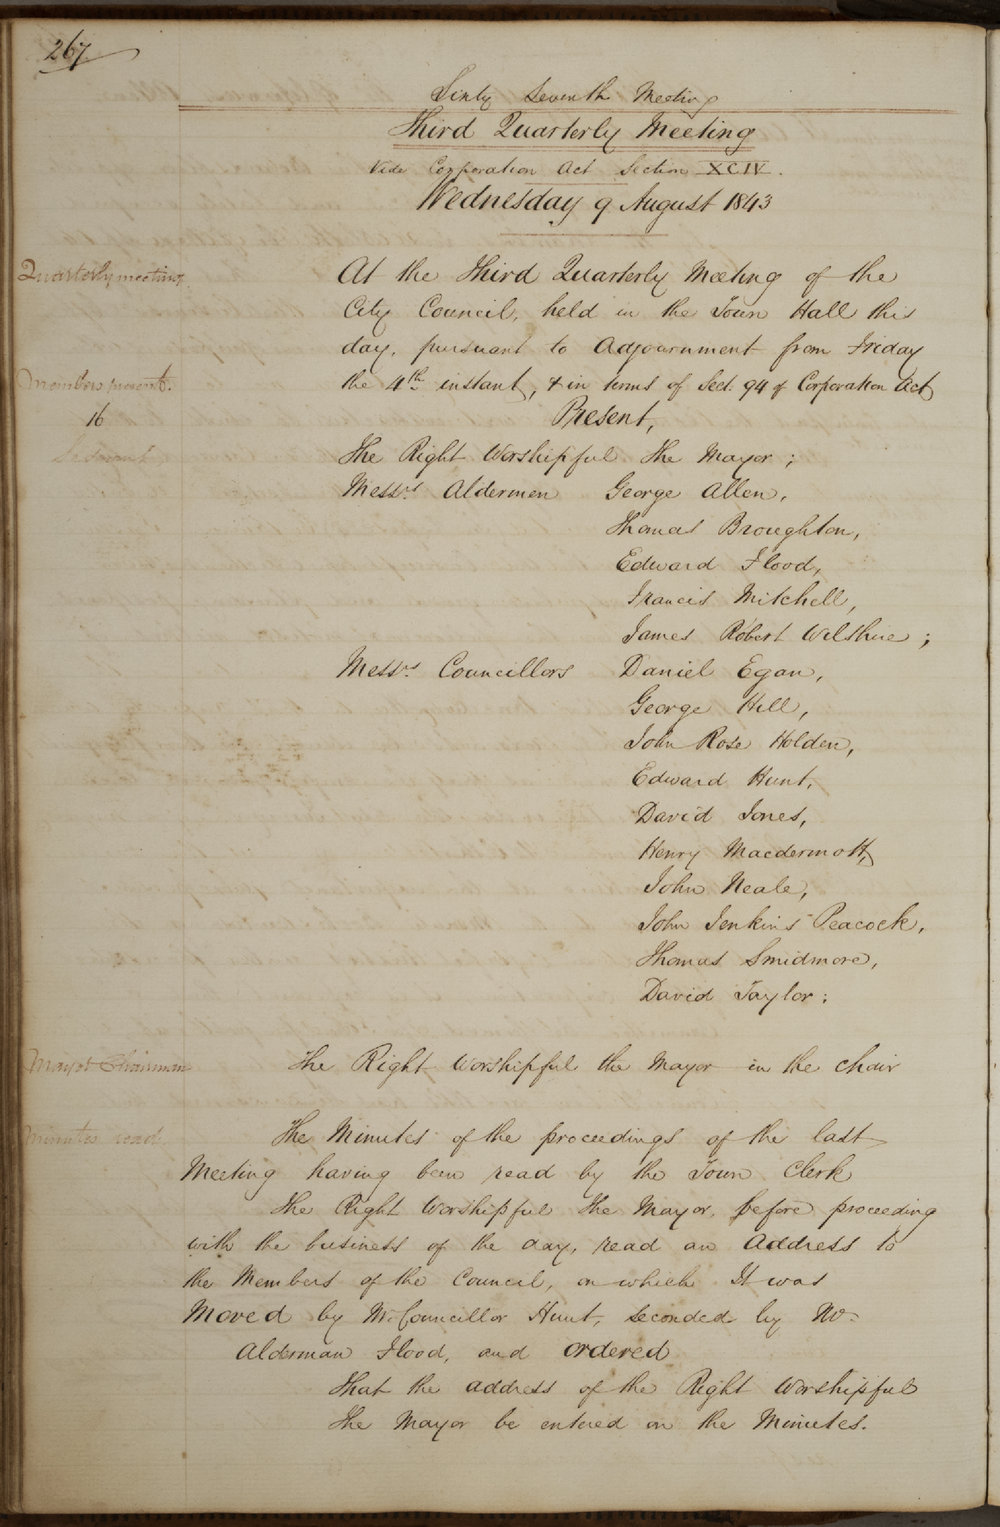 267
Sixty Seventh Meeting
Third Quarterly Meeting
Vide Corporation Act Section XCIV.
Wednesday 9 August 1843
Quarterly meeting
At the Third Quarterly Meeting of the
City Council, held in the Town Hall this
day, pursuant to Adjournment from Friday
Members present.
the 4th instant, & in terms of Sect. 94 of Corporation Act
16
Present,
The Right Worshipful The Mayor;
Messrs Aldermen George Allen,
Thomas Broughton,
Edward Flood,
Francis Mitchell,
James Robert Wilshire;
Messrs Councillors Daniel Egan,
George Hill,
John Rose Holden,
Edward Hunt,
David Jones,
Henry Macdermott,
John Neale,
John Jenkins Peacock,
Thomas Smidmore,
David Taylor;
Mayor Chairman
The Right Worshipful the Mayor in the chair
Minutes read
The Minutes of the proceedings of the last
Meeting having been read by the Town Clerk
The Right Worshipful The Mayor, before proceeding
with the business of the day, read an Address to
the Members of the Council, on which It was
Moved by Mr Councillor Hunt, seconded by Mr
Alderman Flood, and ordered
That the address of the Right Worshipful
The Mayor be entered on the Minutes.